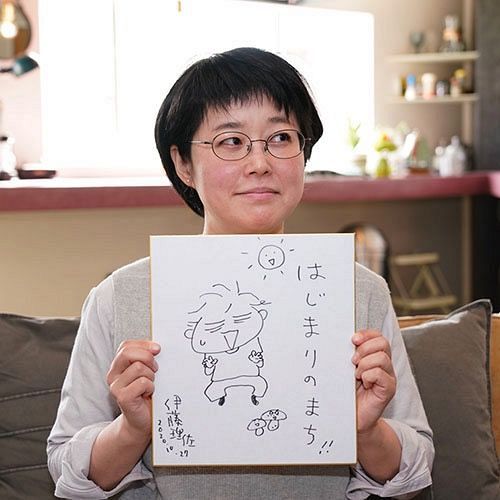 はじまりのまち!!
伊藤理佐
2020
10.27